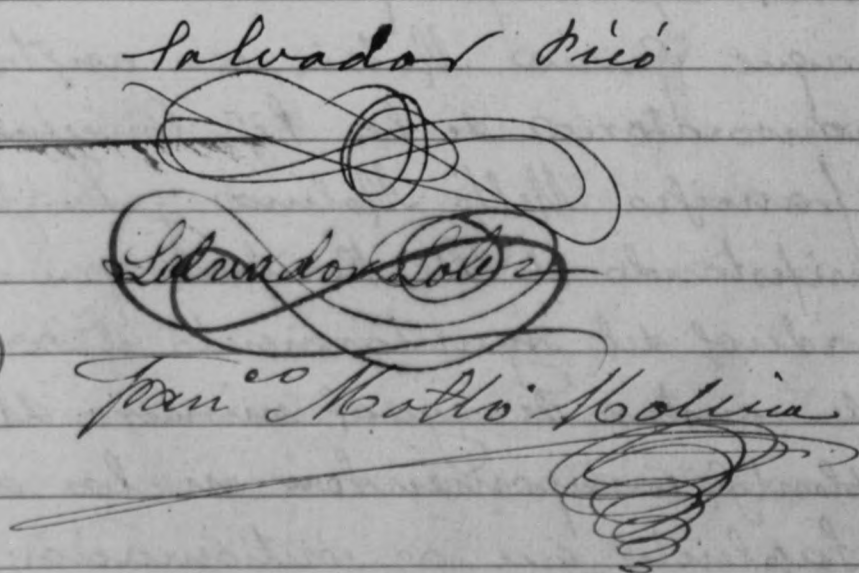 Salvador Picó
Salvador Soler
Fran.co Moltó Molina